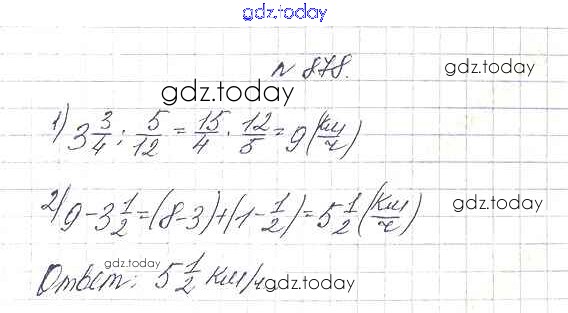 gdz.today
№ 878.
gdz.today
gdz.today
1) 3 3/4 : 5/12 = 15/4 · 12/5 = 9 (км/ч)
2) 9 - 3 1/2 = (8-3) + (1 - 1/2) = 5 1/2 (км/ч)
gdz.today
gdz.today
Ответ: 5 1/2 км/ч
gdz.today